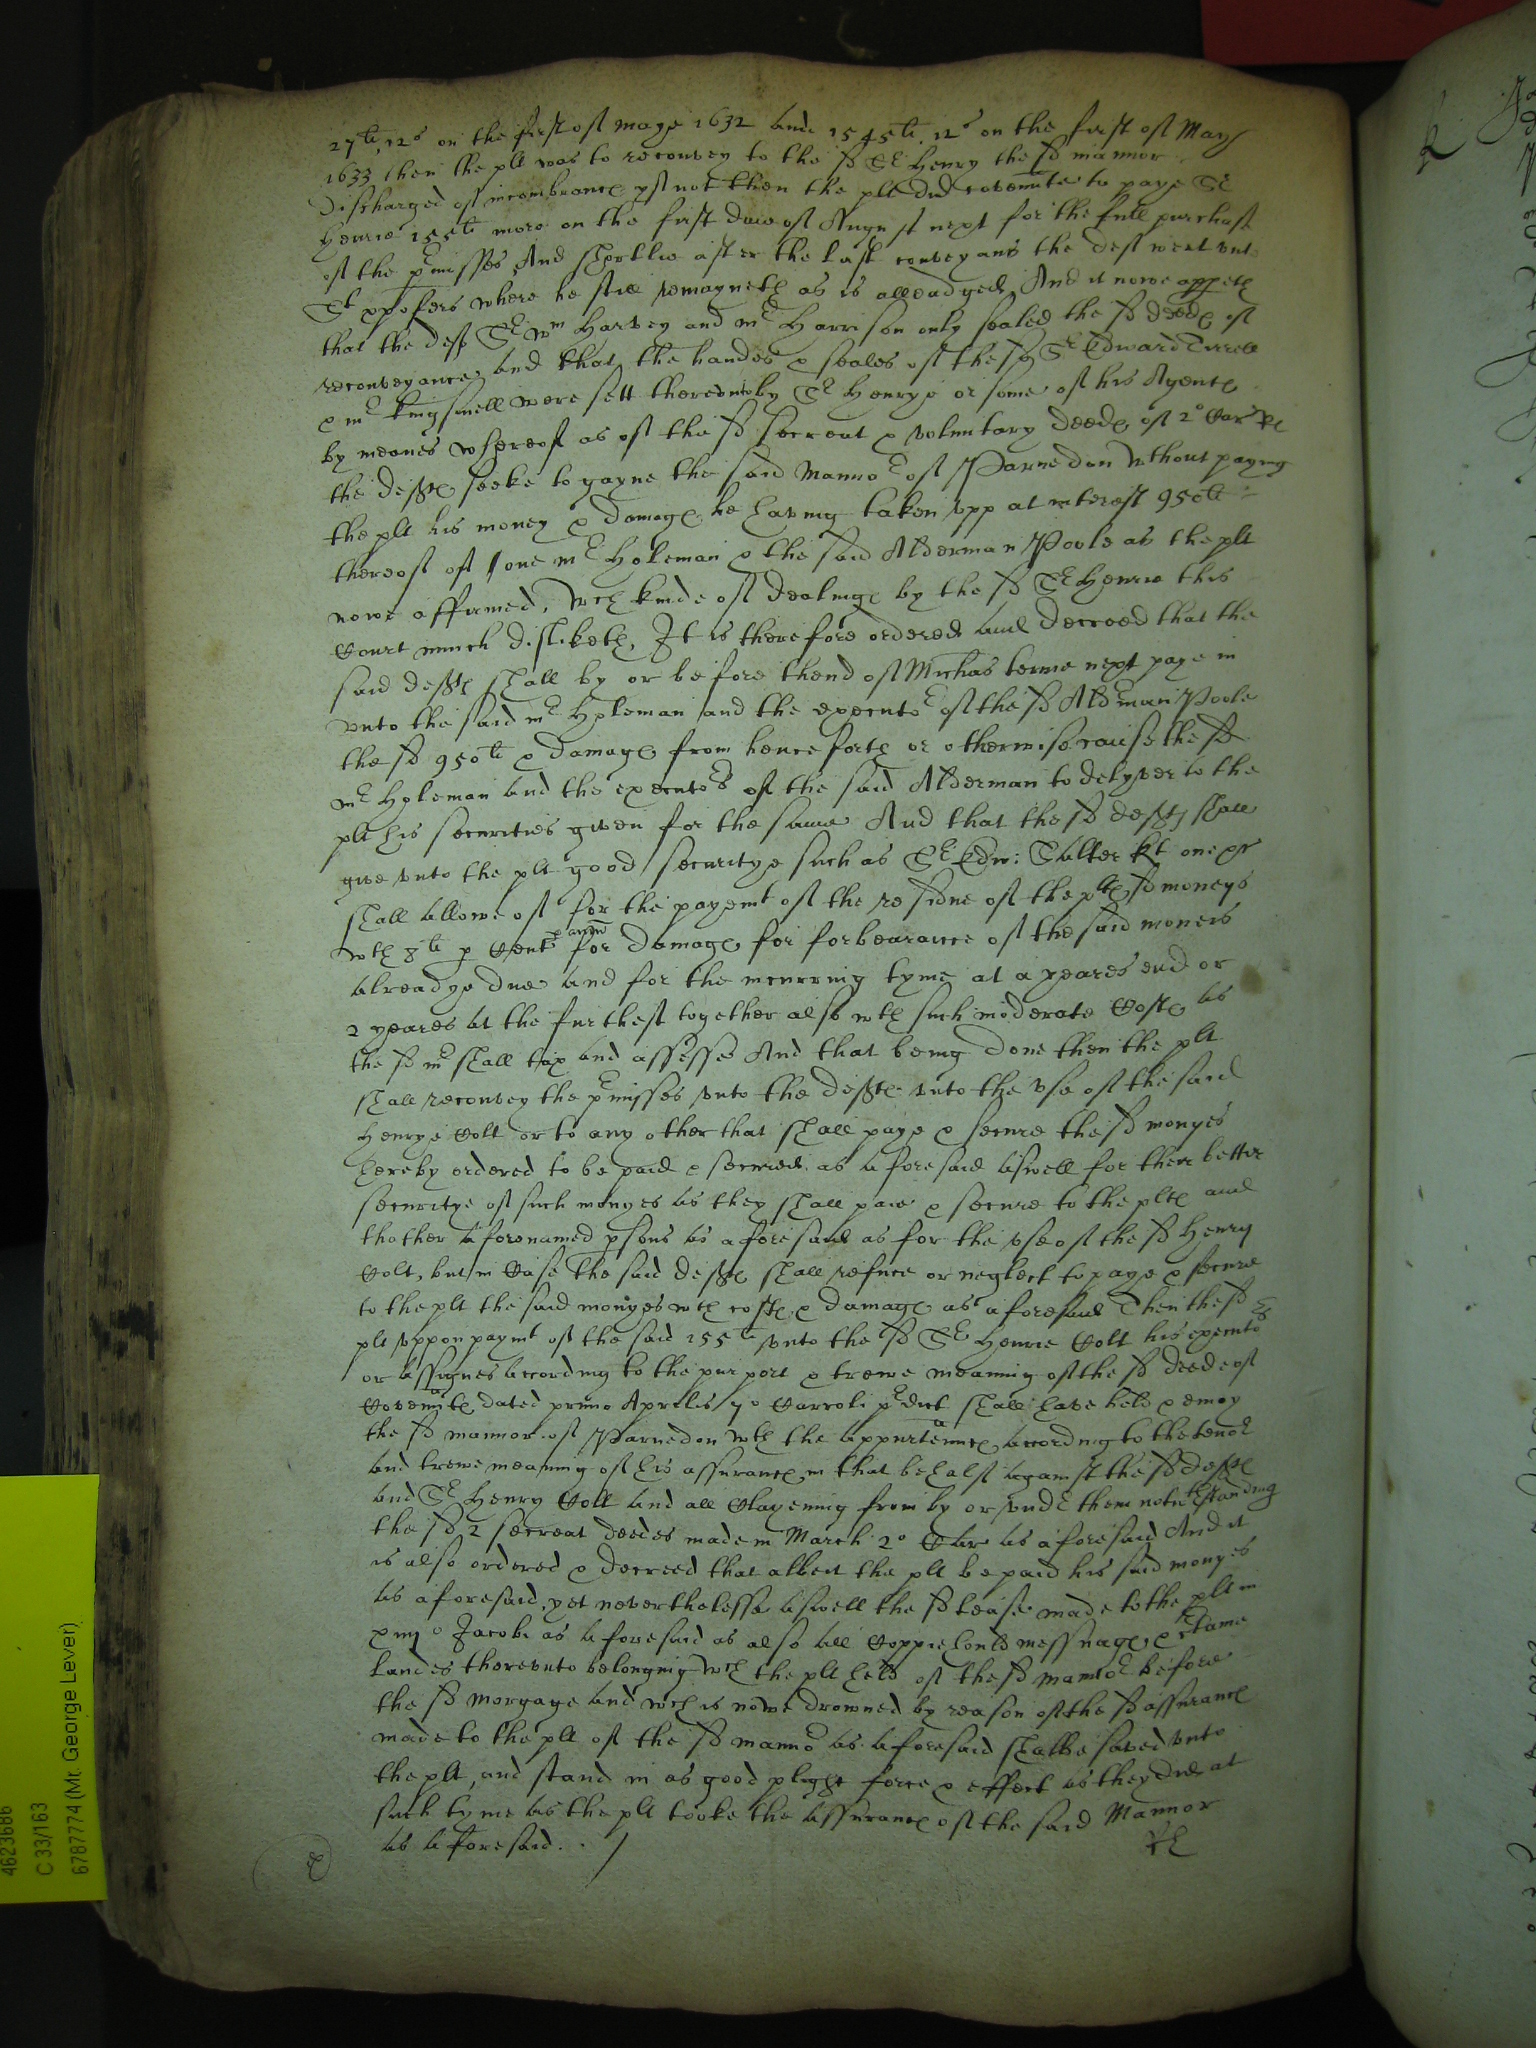 27li, 12s on the first of maye 1632 and 1545li. 12s on the first of May
1633 then the plt was to reconvey to the sd Sr Henry the sd mannor
discharged of incombrance yf not then the plt did covennte to paye Sr
Henrie 155li more on the first daie of August next for the full purchase
of the pmisses And shortlie after the last conveyans the deft went unto
St where he still remayneth as is alleadged, And it nowe appeth
that the deft Sr Wm Harvey and mr Harrison only sealed the sd deede of
reconveyance, and that the handes & seales of the sd Sr Edward Tirrell
& mr kingsmell were sett thereunto by Sr Henrye or some of his Agente
by meanes whereof as of the sd secreat & voluntary deede of 2o Car Re
the defte seeke to gayne the said Mannor of Parnedon wthout paying
the plt his money & damage he having taken upp at interest 950li
thereof of one mr Holeman & the said Alderman Poole as the plt
nowe affirmed, wch kinde of dealinge by the sd Sr Henrie this
Court much disliketh, It is therefore ordered and decreed that the
said defte shall by or before thend of Michas terme next paye in
unto the said mr Holeman and the executor of the sd Alderman Poole
the sd 950li & damage from henceforth or otherwise cause the sd
mr Holeman and the executors of the said Alderman to delyver to the
plt his securities given for the same And that the sd defts shall
give unto the plt good securitye such as Sr Edw: Salter kt one
shall allowe of for the payemt of the residue of the plts sd moneys
wth 8li p Cent p ann for damage for forbearance of the said moneis
alreadye due and for the incurring tyme at a yeares end or
2 yeares at the furthest together also wth such moderate Coste as
the sd mr shall tax and assesse And that being done then the plt
shall reconvey the pmisses unto the defte unto the use of the said
Henrye Colt or to any other that shall paye & secure the sd monyes
hereby ordered to be paid & secured as aforesaid aswell for their better
securitye of such monyes as they shall paie & secure to the plte and
thother aforenamed psons as aforesaid as for the use of the sd Henry
Colt, but in Case the said defte shall refuce or neglect to paye & secure
to the plt the said monyes wth coste & damage as aforesaid Then the sd
plt uppon paymt of the said 155li unto the sd Sr Henrie Colt his executors
or assignes according to the purport & trewe meaning of the sd deede of
Covennte dated primo Aprilis 7o Carroli pdict shall have hold & enioy
the sd mannor of Parnedon wth the appurtennce according to the tenor
and trewe meaning of his assurance in that behalf against the sd defte
and Sr Henry Colt and all Clayeming from by or under them notwthstanding
the sd 2 secreat deedes made in March 2o Car as aforesaid And it
is also ordered & decreed that albeit the plt be paid his said monyes
as aforesaid, yet neverthelesse aswell the sd lease made to the plt in
Jacobi as aforesaid as also all Coppiehould messuage & ctaine
landes thereunto belonging wch the plt held of the sd mannor before
the sd morgage and wch is nowe drowned by reason of the sd assurance
made to the plt of the sd mannor as aforesaid shalbe saved unto
the plt, and stand in as good plight force & effect as they did at
such tyme as the plt tooke the assurance of the said Mannor
as aforesaid. . /
4623686
C 33/163
6787774 (Mt. George Lever)